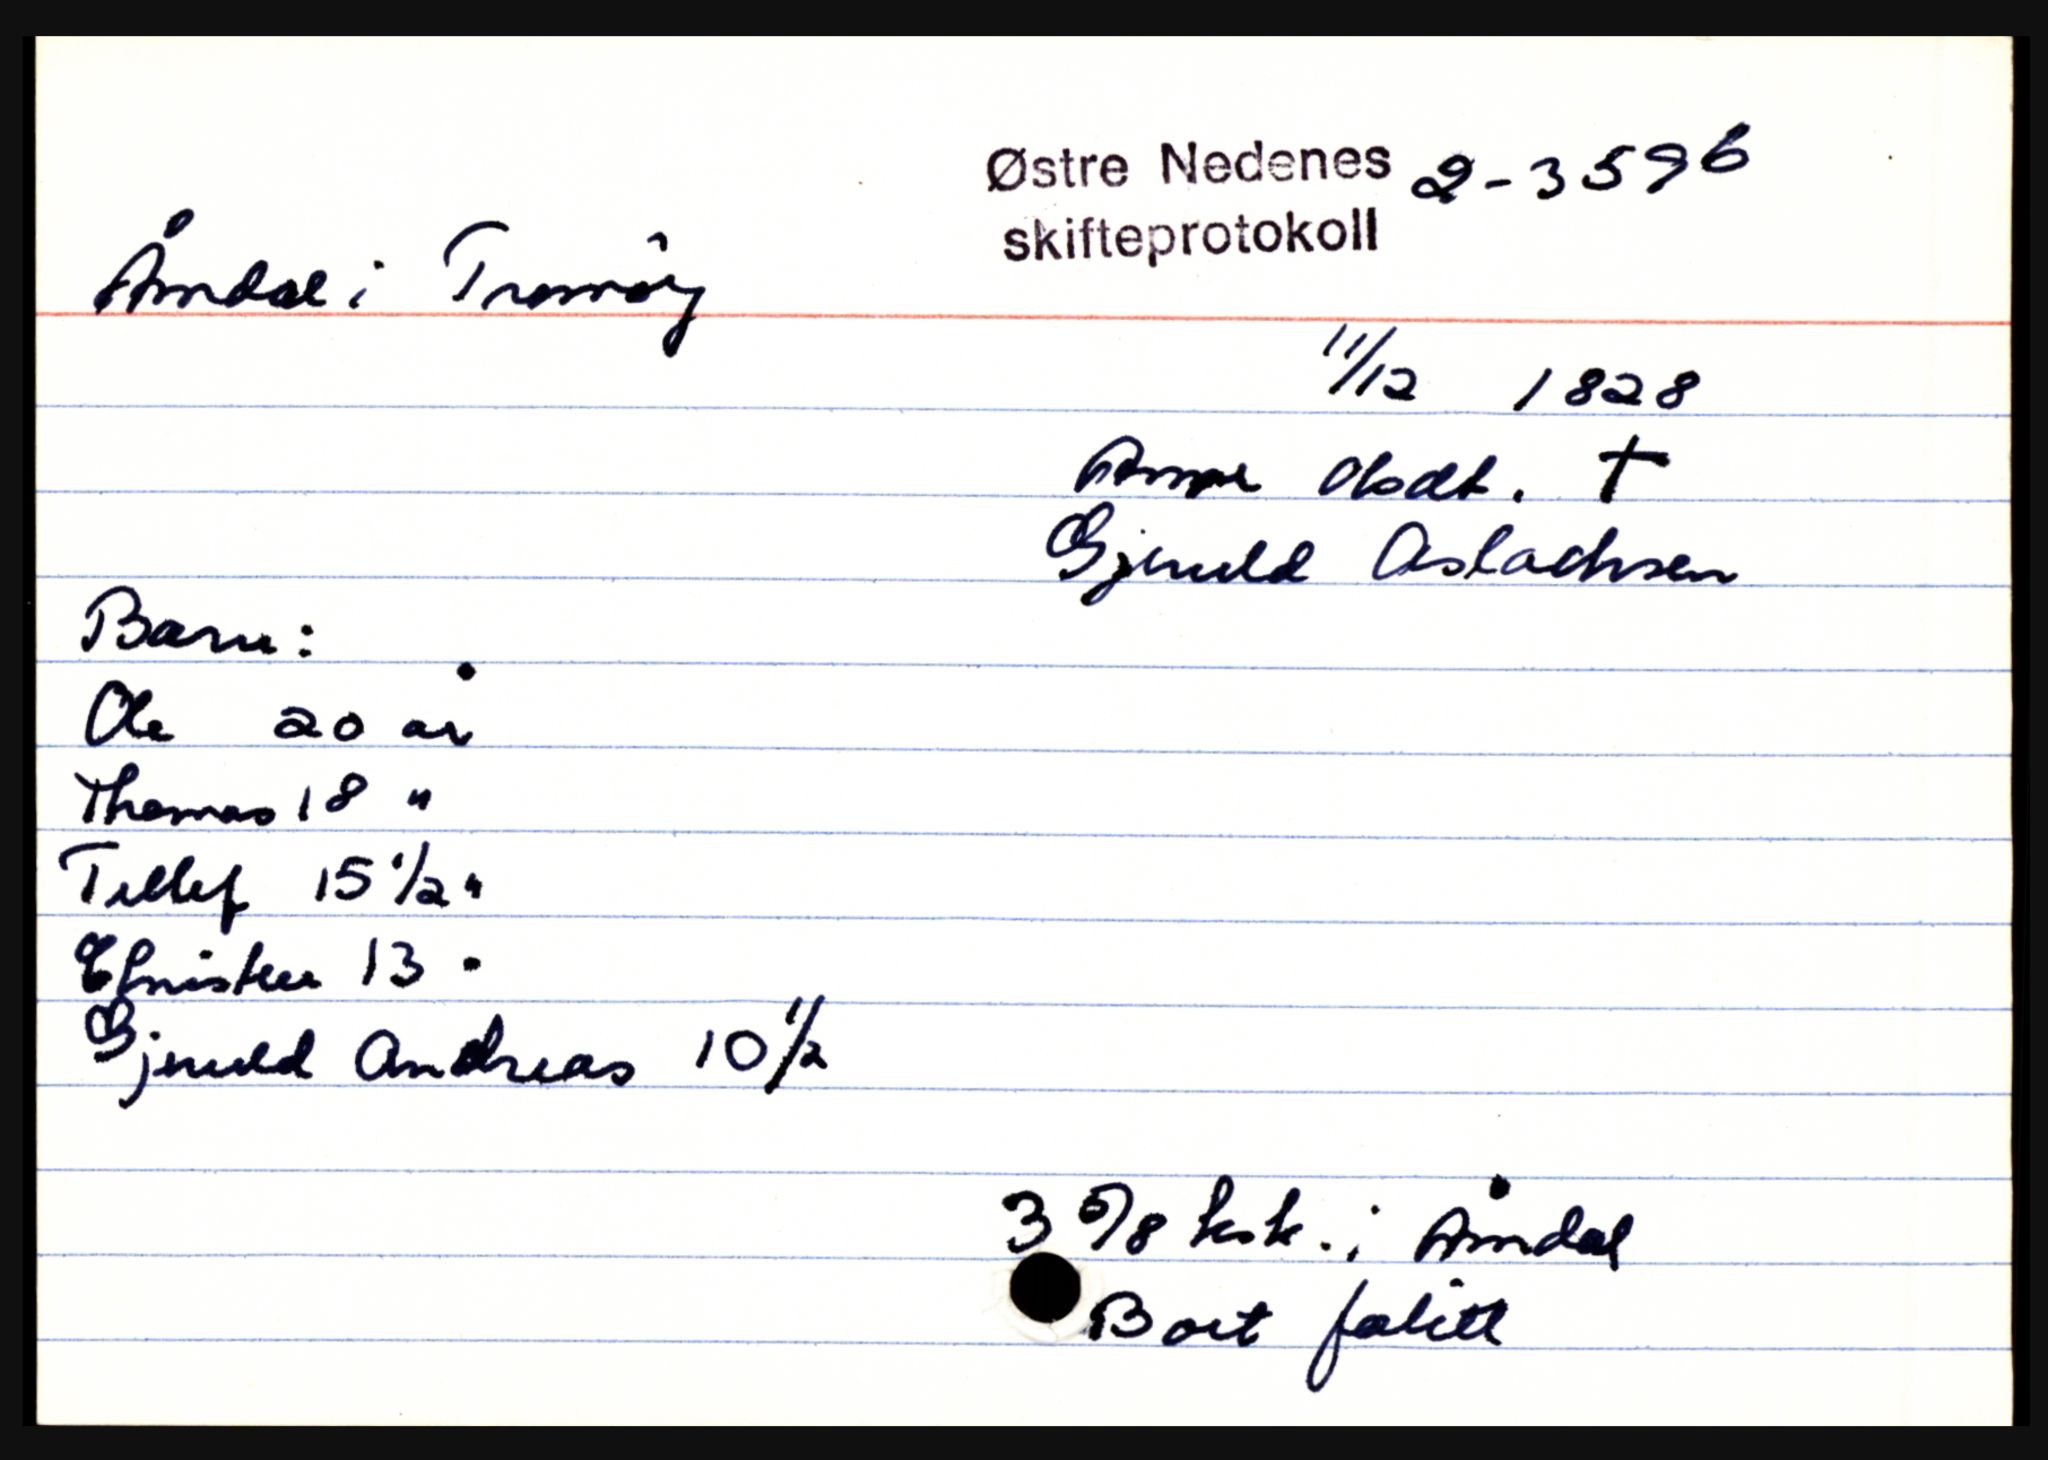 Østre Nedenes 2-3596
skifteprotokoll
Åmdal i Tromøy
11/12 1828
Anne Olsdt. †
Gjeruld Aslachsen
Barn:
Ole 20 år
Thomas 18 "
Tellef 15 1/2 "
13 "
Gjeruld Andreas 10 1/2
3 5/8 ksk. i Åmdal
Boet falitt